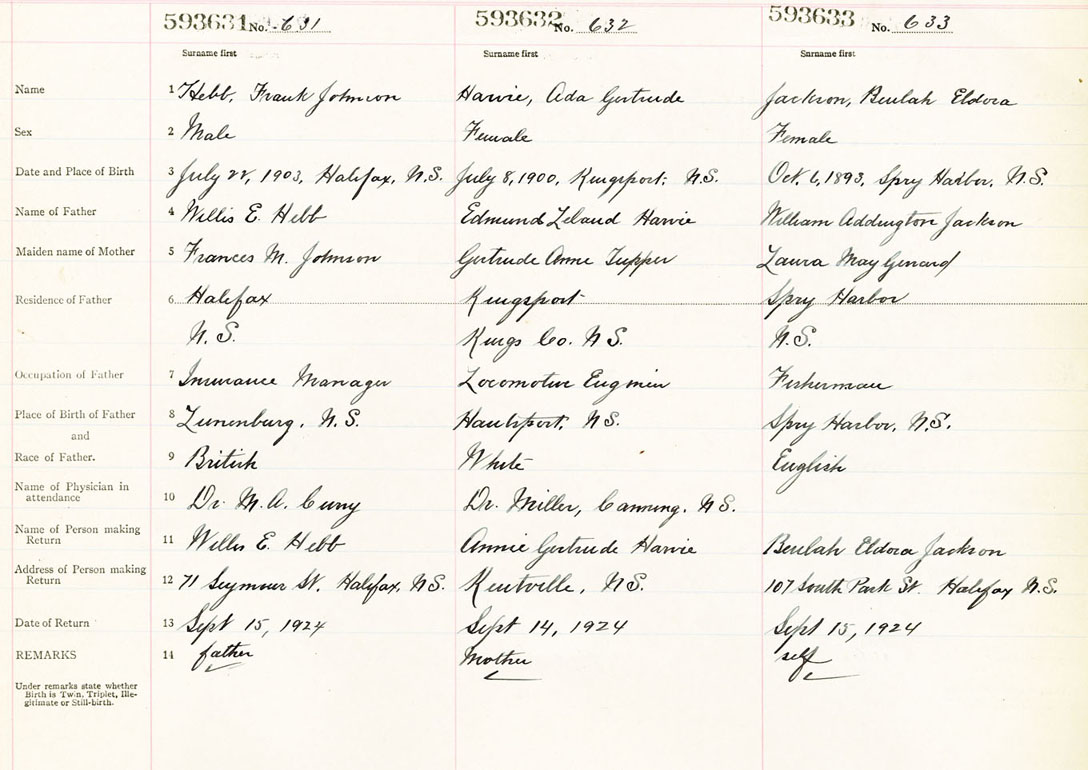 593631 No. 631 593632 No. 632 593633 No. 633
Surname first Surname first Surname first
Name 1 Hebb, Frank Johnson Harvie, Ada Gertrude Jackson, Beulah Eldora
Sex 2 Male Female Female
Date and Place of Birth 3 July 22, 1903, Halifax, N.S. July 8, 1900, Kingsport, N.S. Oct. 6, 1893, Spry Harbor, N.S.
Name of Father 4 Willis E. Hebb Edmund Leland Harvie William Addington Jackson
Maiden name of Mother 5 Frances M. Johnson Gertrude Annie Tupper Laura May
Residence of Father 6 Halifax Kingsport Spry Harbor
N.S. Kings Co. N.S. N.S.
Occupation of Father 7 Insurance Manager Locomotive Engineer Fisherman
Place of Birth of Father 8 Lunenburg, N.S. Hantsport, N.S. Spry Harbor, N.S.
and
Race of Father. 9 British White English
Name of Physician in
attendance 10 Dr. M.A. Curry Dr. Miller, Canning, N.S.
Name of Person making
Return 11 Willis E. Hebb Annie Gertrude Harvie Beulah Eldora Jackson
Address of Person making
Return 12 71 Seymour St. Halifax, N.S. Kentville, N.S. 107 South Park St. Halifax N.S.
Date of Return 13 Sept 15, 1924 Sept 14, 1924 Sept 15, 1924
REMARKS 14 father Mother self
Under remarks state whether
Birth is Twin, Triplet, Ille-
gitimate or Still-birth.